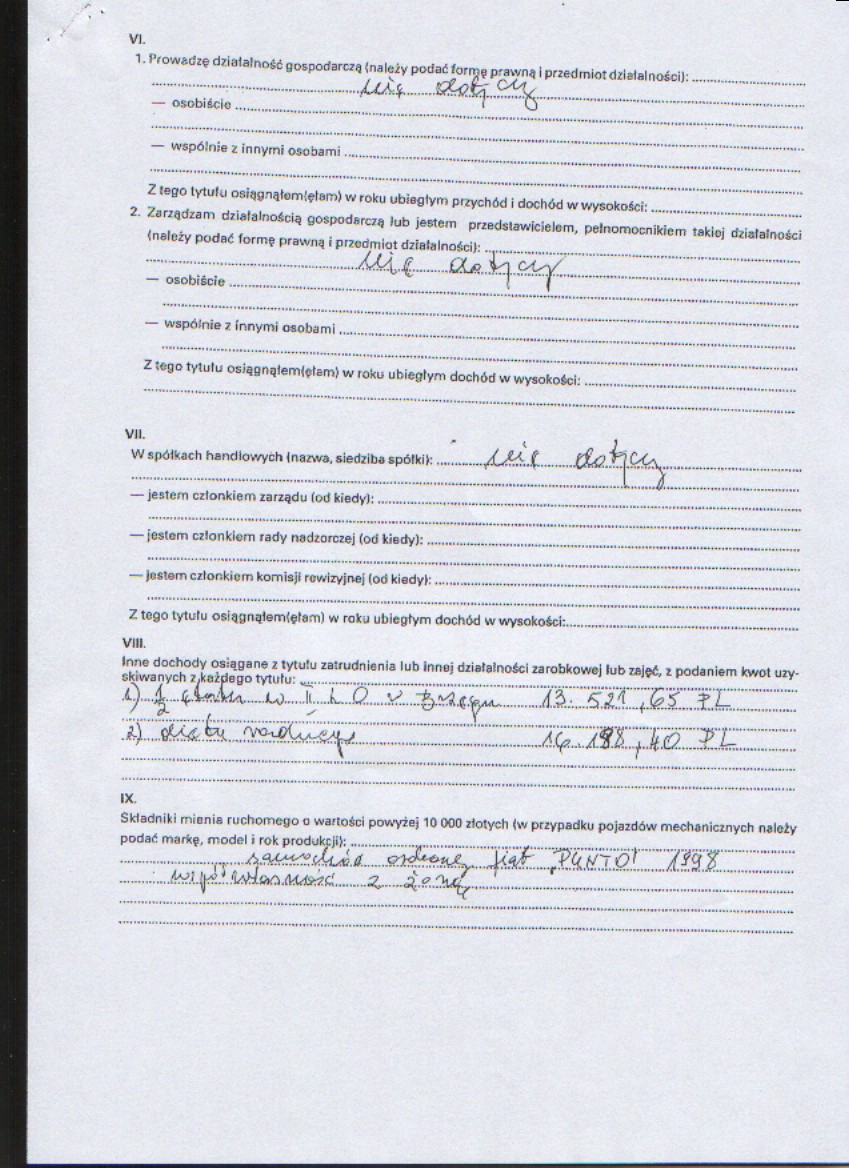 VI.
1. Prowadzę działalność gospodarczą (należy podać formę prawną i przedmiot działalności): ........
nie dotyczy
— osobiście ........
— wspólnie z innymi osobami ........
Z tego tytułu osiągnąłem(ęłam) w roku ubiegłym przychód i dochód w wysokości: ........
2. Zarządzam działalnością gospodarczą lub jestem przedstawicielem, pełnomocnikiem takiej działalności
(należy podać formę prawną i przedmiot działalności): ........
nie dotyczy
— osobiście ........
— wspólnie z innymi osobami ........
Z tego tytułu osiągnąłem(ęłam) w roku ubiegłym dochód w wysokości: ........
VII.
W spółkach handlowych (nazwa, siedziba spółki): ........ nie dotyczy
— jestem członkiem zarządu (od kiedy): ........
— jestem członkiem rady nadzorczej (od kiedy): ........
— jestem członkiem komisji rewizyjnej (od kiedy): ........
Z tego tytułu osiągnąłem(ęłam) w roku ubiegłym dochód w wysokości: ........
VIII.
Inne dochody osiągane z tytułu zatrudnienia lub innej działalności zarobkowej lub zajęć, z podaniem kwot uzy-
skiwanych z każdego tytułu: ........
1) 1/2 etatu w II LO w Brzegu 13.521,65 PL
2) dieta radnego 16.188,40 PL
IX.
Składniki mienia ruchomego o wartości powyżej 10 000 złotych (w przypadku pojazdów mechanicznych należy
podać markę, model i rok produkcji): ........
samochód osobowy fiat "PUNTO" 1998
współwłasność z żoną